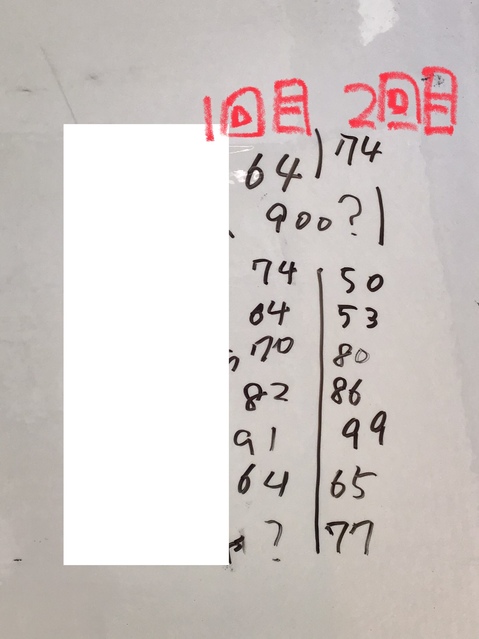 1回目 2回目
64 | 74
900? |
74 | 50
64 | 53
70 | 80
82 | 86
91 | 99
64 | 65
? | 77